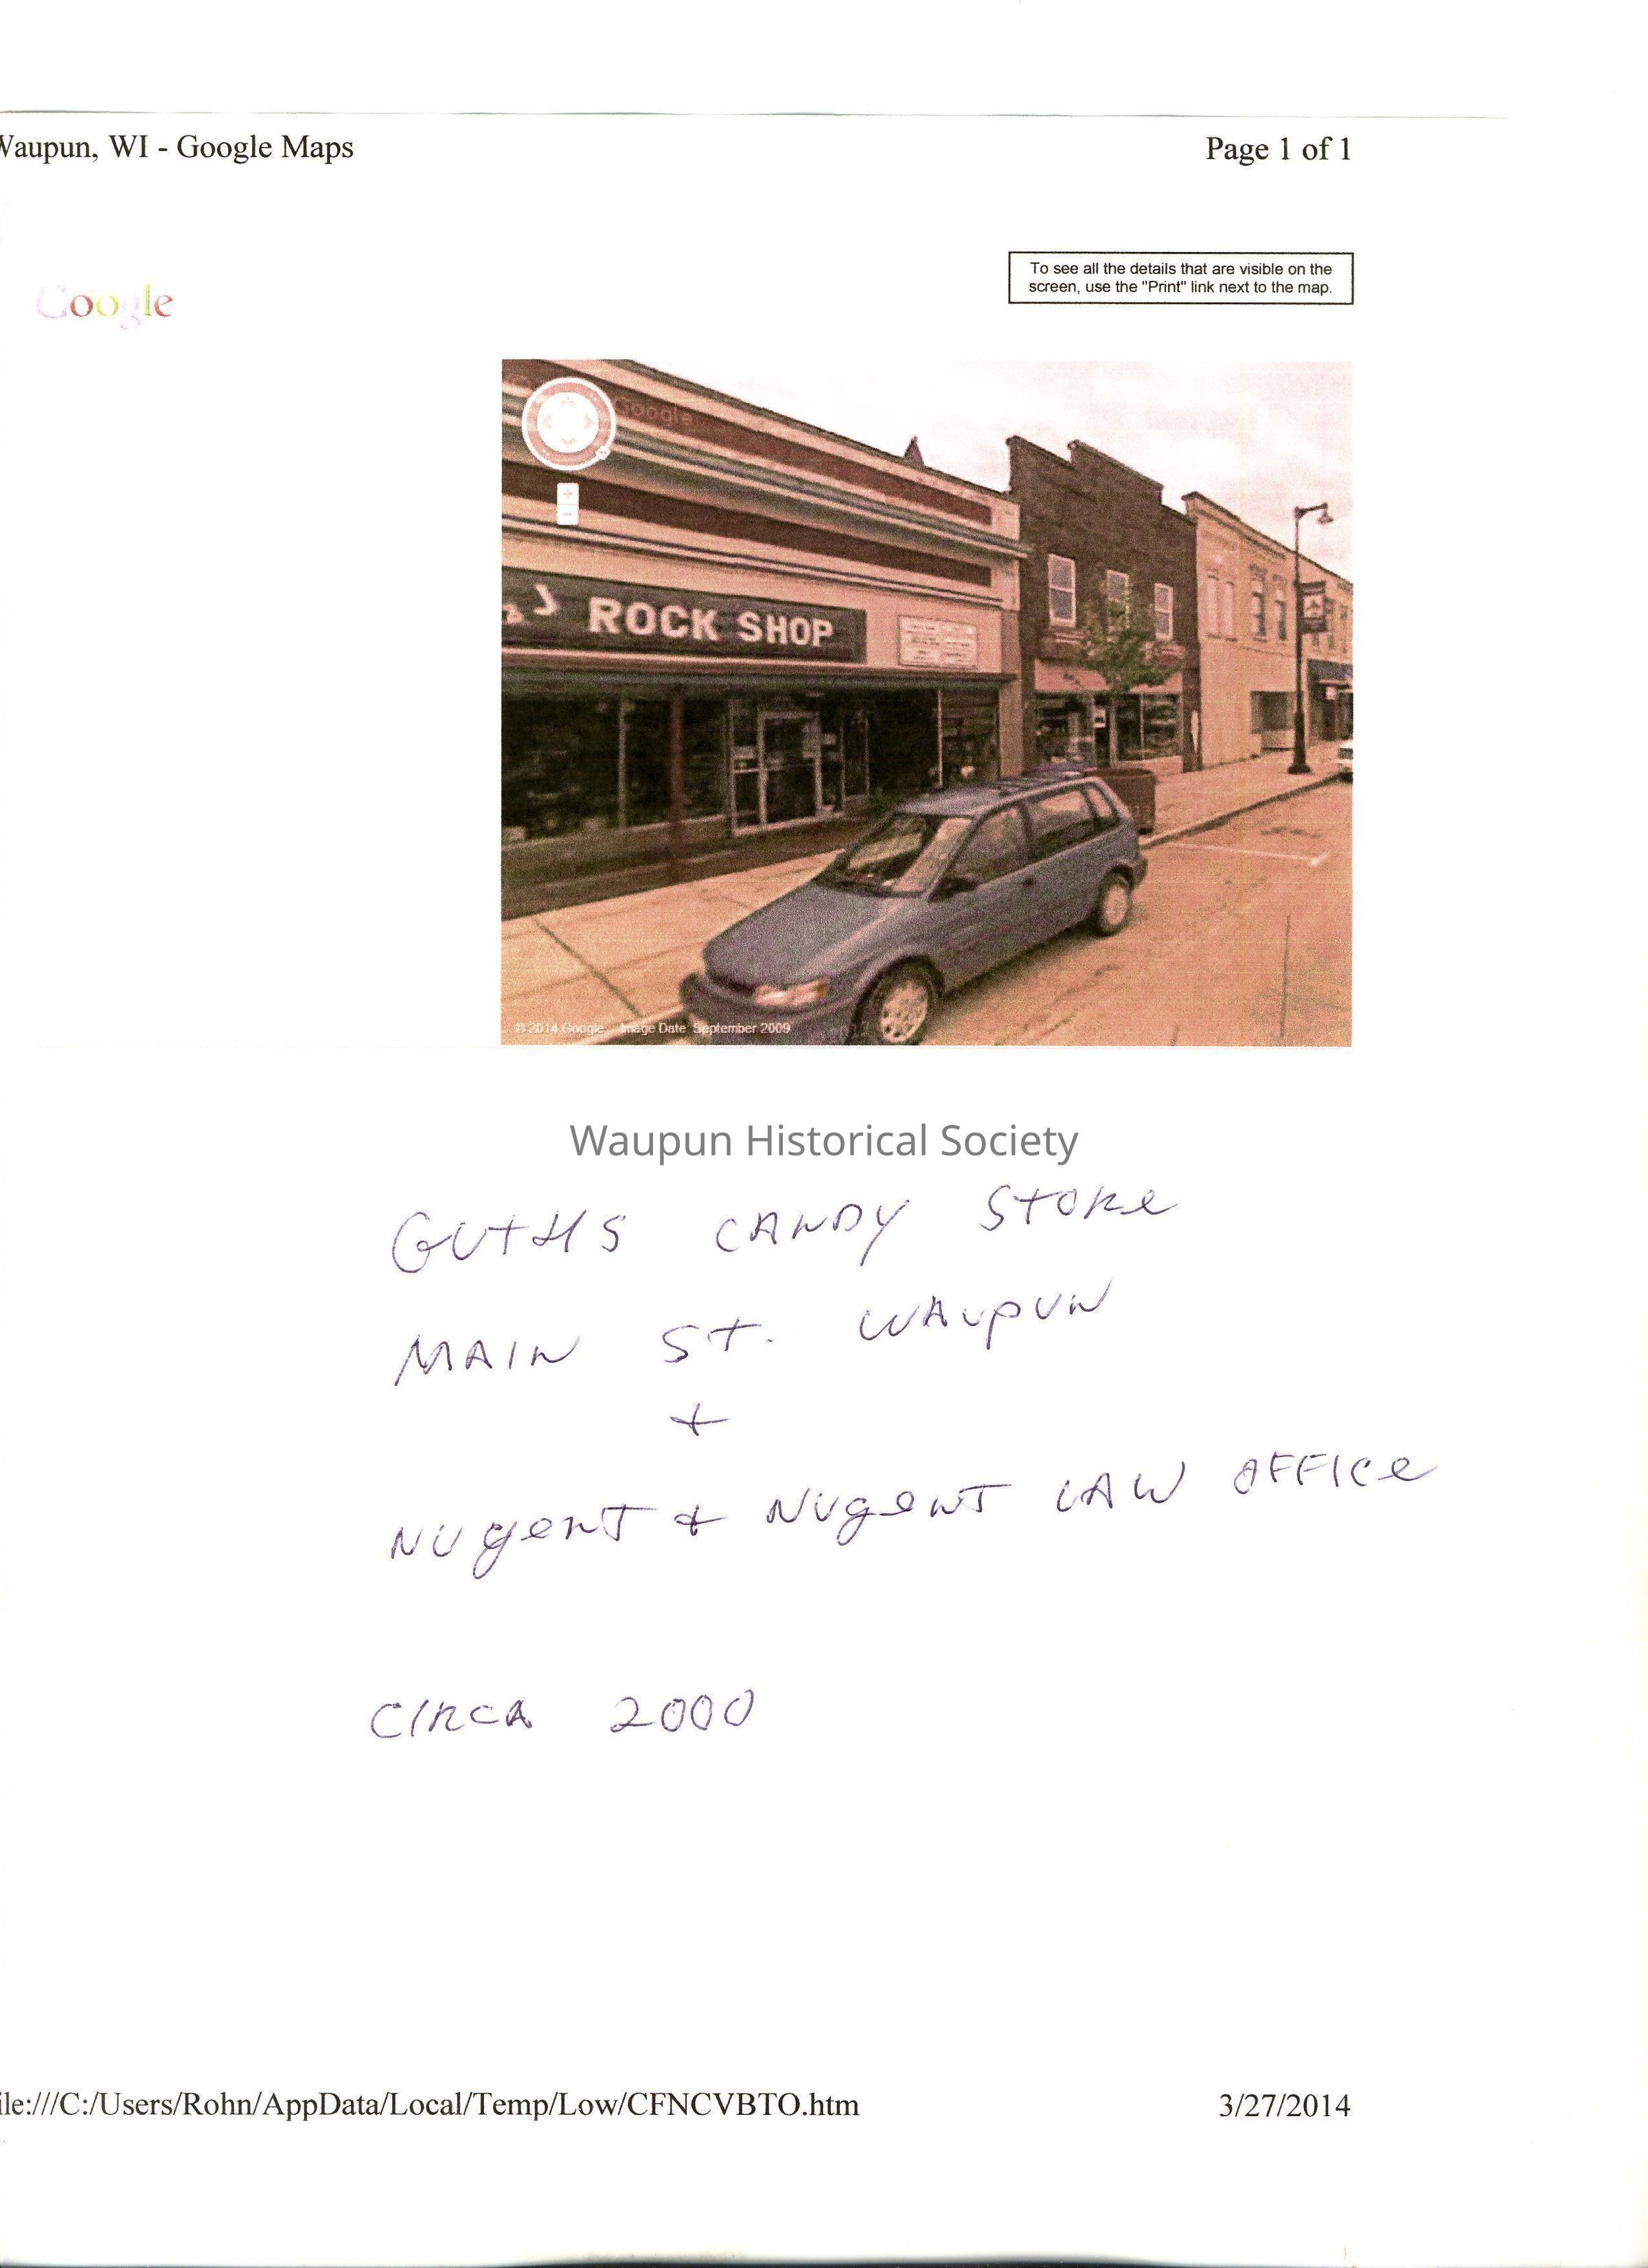 Waupun, WI - Google Maps
Page 1 of 1
Google
To see all the details that are visible on the
screen, use the "Print" link next to the map.
Google
J ROCK SHOP
© 2014 Google Image Date September 2009
Waupun Historical Society
GUTHS CANDY STORE
MAIN ST. WAUPUN
+
NUgENT + NUgeNT LAW OFFICe
CIRCA 2000
ile:///C:/Users/Rohn/AppData/Local/Temp/Low/CFNCVBTO.htm
3/27/2014